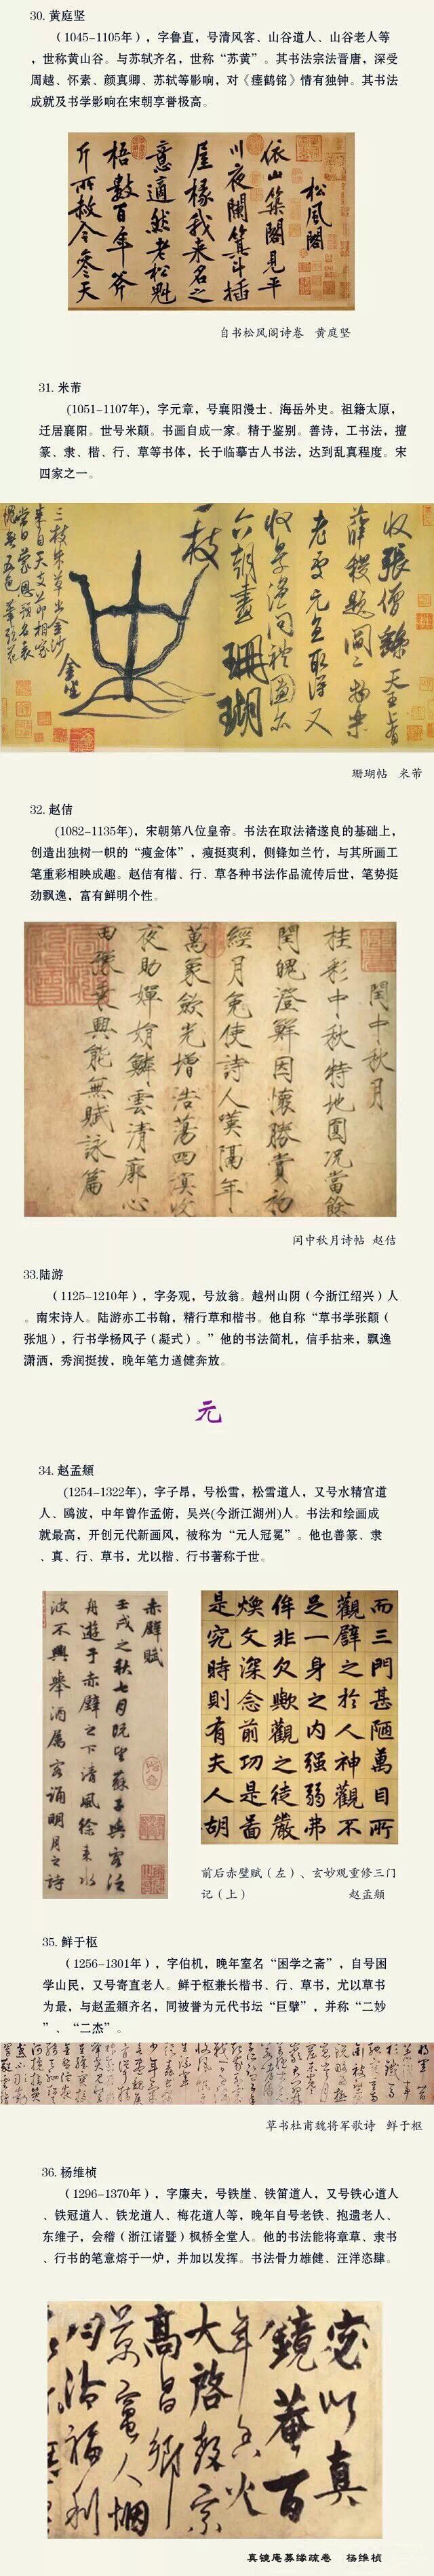 30. 黄庭坚
（1045-1105年），字鲁直，号清风客、山谷道人、山谷老人等
，世称黄山谷。与苏轼齐名，世称“苏黄”。其书法宗法晋唐，深受
周越、怀素、颜真卿、苏轼等影响，对《瘗鹤铭》情有独钟。其书法
成就及书学影响在宋朝享誉极高。
松风阁
依山筑阁见平
川夜阑箕斗插
屋椽我来名之
意適然老松魁
梧數百年斧
斤所赦今參天
自书松风阁诗卷 黄庭坚
31. 米芾
(1051-1107年)，字元章，号襄阳漫士、海岳外史。祖籍太原，
迁居襄阳。世号米颠。书画自成一家。精于鉴别。善诗，工书法，擅
篆、隶、楷、行、草等书体，长于临摹古人书法，达到乱真程度。宋
四家之一。
收張僧繇天王上有
薛稷題閻二物樂
老處元直取得又
收景溫問禮圖亦
六朝畫珊瑚
一枝
三枝朱草出金沙
来自天支节相家
當日蒙恩預名表
愧無五色筆頭花
金坐
珊瑚帖 米芾
32. 赵佶
(1082-1135年)，宋朝第八位皇帝。书法在取法褚遂良的基础上，
创造出独树一帜的“瘦金体”，瘦挺爽利，侧锋如兰竹，与其所画工
笔重彩相映成趣。赵佶有楷、行、草各种书法作品流传后世，笔势挺
劲飘逸，富有鲜明个性。
閏中秋月
桂彩中秋特地圓况當餘
閏魄澄鮮因懷勝賞初
經月免使詩人嘆隔年
萬象歛光增浩蕩四溟收
夜助嬋娟鱗雲清廓心
田豫乘興能無賦詠篇
闰中秋月诗帖 赵佶
33.陆游
（1125-1210年），字务观，号放翁。越州山阴（今浙江绍兴）人
。南宋诗人。陆游亦工书翰，精行草和楷书。他自称“草书学张颠（
张旭），行书学杨风子（凝式）。”他的书法简札，信手拈来，飘逸
潇洒，秀润挺拔，晚年笔力遒健奔放。
元
34. 赵孟頫
(1254-1322年)，字子昂，号松雪，松雪道人，又号水精宫道
人、鸥波，中年曾作孟俯，吴兴(今浙江湖州)人。书法和绘画成
就最高，开创元代新画风，被称为“元人冠冕”。他也善篆、隶
、真、行、草书，尤以楷、行书著称于世。
赤壁賦
壬戌之秋七月既望蘇子與客泛
舟遊于赤壁之下清風徐来水
波不興舉酒属客誦明月之詩
而三門甚陋萬目所
觀聲之於人神觀不
足一身之内强弱弗
侔非欠歟觀之徒嚴
煥文深念前功是啚
是究時則有夫人胡
前后赤壁赋（左）、玄妙观重修三门
记（上） 赵孟頫
35. 鲜于枢
（1256-1301年），字伯机，晚年室名“困学之斋”，自号困
学山民，又号寄直老人。鲜于枢兼长楷书、行、草书，尤以草书
为最，与赵孟頫齐名，同被誉为元代书坛“巨擘”，并称“二妙
”、“二杰”。
草书杜甫魏将军歌诗 鲜于枢
36. 杨维桢
（1296-1370年），字廉夫，号铁崖、铁笛道人，又号铁心道人
、铁冠道人、铁龙道人、梅花道人等，晚年自号老铁、抱遗老人、
东维子，会稽（浙江诸暨）枫桥全堂人。他的书法能将章草、隶书
、行书的笔意熔于一炉，并加以发挥。书法骨力雄健、汪洋恣肆。
宓以真
鏡菴百
年香火
大啓教宗
高昌鄉
真镜庵募缘疏卷 杨维桢